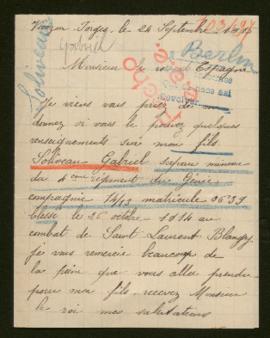 Berlin
Soliveau
Gabriel
Monsieur le roi d'Espagne
Je viens vous prier de
donnez si vous le pouvez quelques
renseignements sur mon fils
Soliveau Gabriel sapeur mineur
du 4ème régiment du Génie
compagnie 14/13 matricule
blessé le 26 octobre 1914 au
combat de Saint Laurent Blangy
je vous remercie beaucoup de
la peine que vous allez prendre
pour mon fils, recevez Monsieur
le roi mes salutations